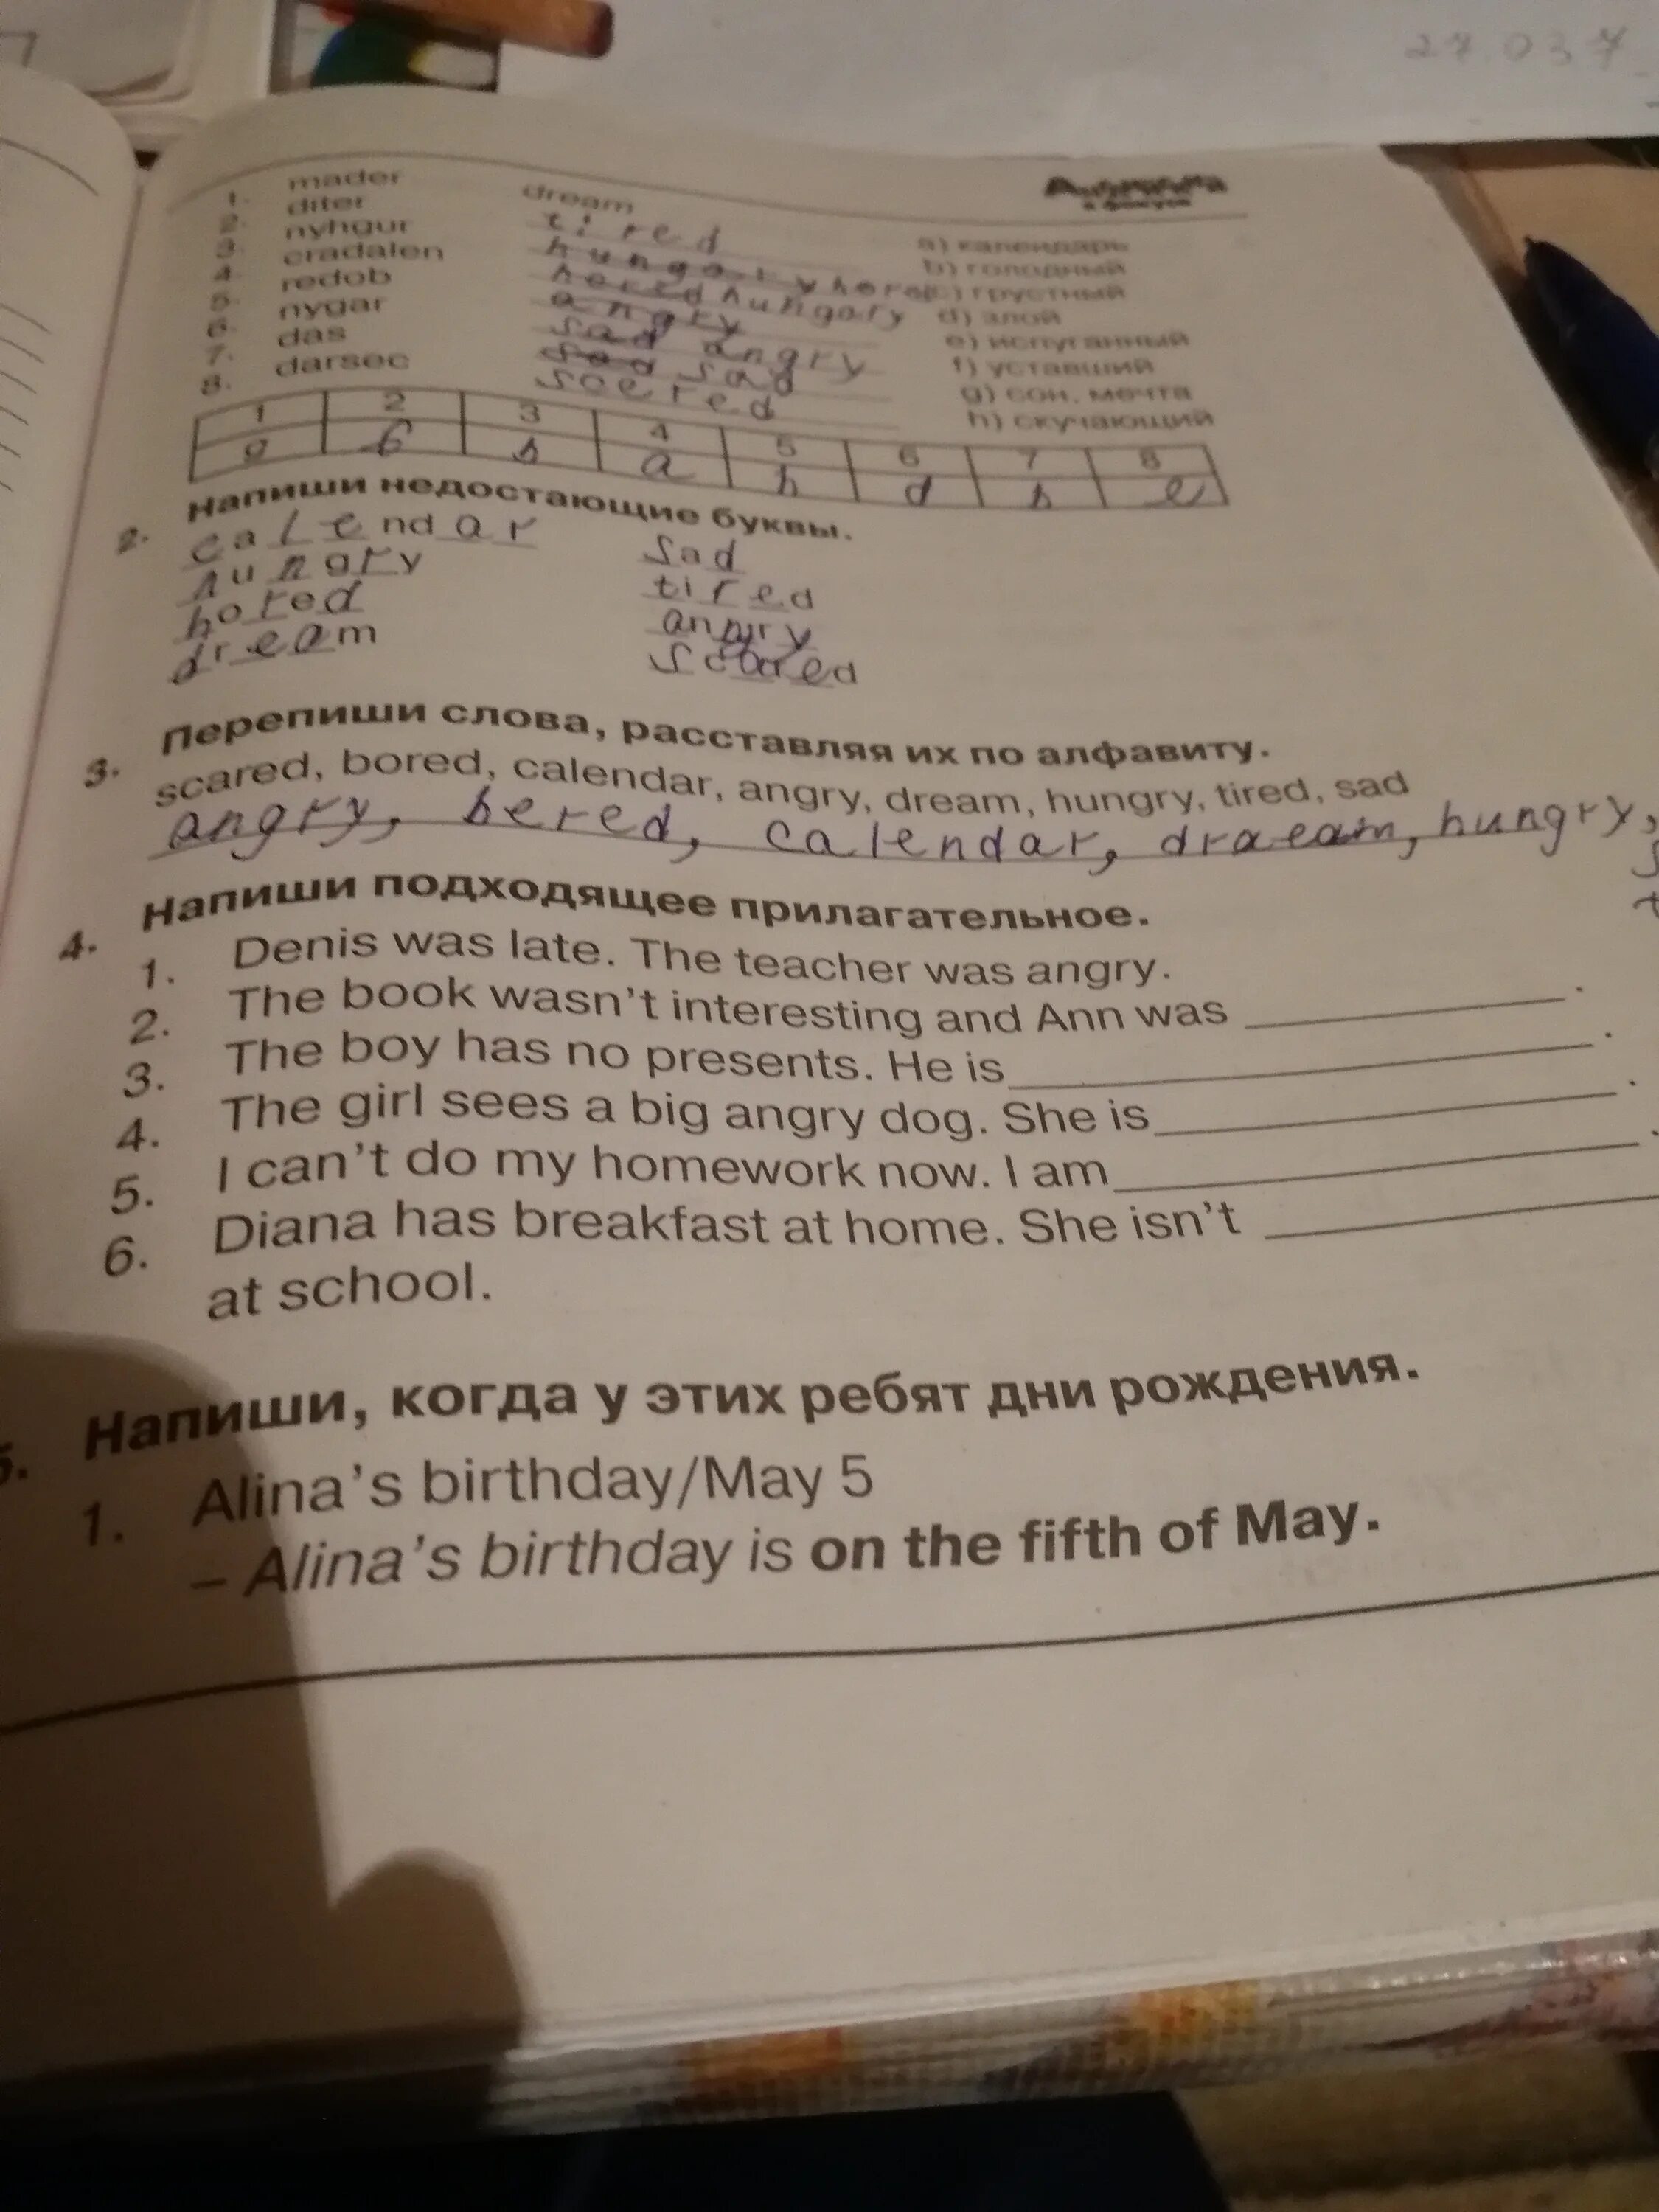 27.03.7
1. mader dream
2. diter tired a) календарь
3. nyhgur b) голодный
4. cradalen c) грустный
5. redob d) злой
6. nygar angry e) испуганный
7. das sad f) уставший
8. darsec scered g) сон, мечта
h) скучающий
1 2 3 4 5 6 7 8
g b a h d b e
2. Напиши недостающие буквы.
calendar sad
hungry tired
bored angry
dream scared
3. Перепиши слова, расставляя их по алфавиту.
scared, bored, calendar, angry, dream, hungry, tired, sad
angry, bered, calendar, draeam, hungry,
4. Напиши подходящее прилагательное.
1. Denis was late. The teacher was angry.
2. The book wasn't interesting and Ann was ___.
3. The boy has no presents. He is ___.
4. The girl sees a big angry dog. She is ___.
5. I can't do my homework now. I am ___.
6. Diana has breakfast at home. She isn't ___
at school.
5. Напиши, когда у этих ребят дни рождения.
1. Alina's birthday/May 5
– Alina's birthday is on the fifth of May.